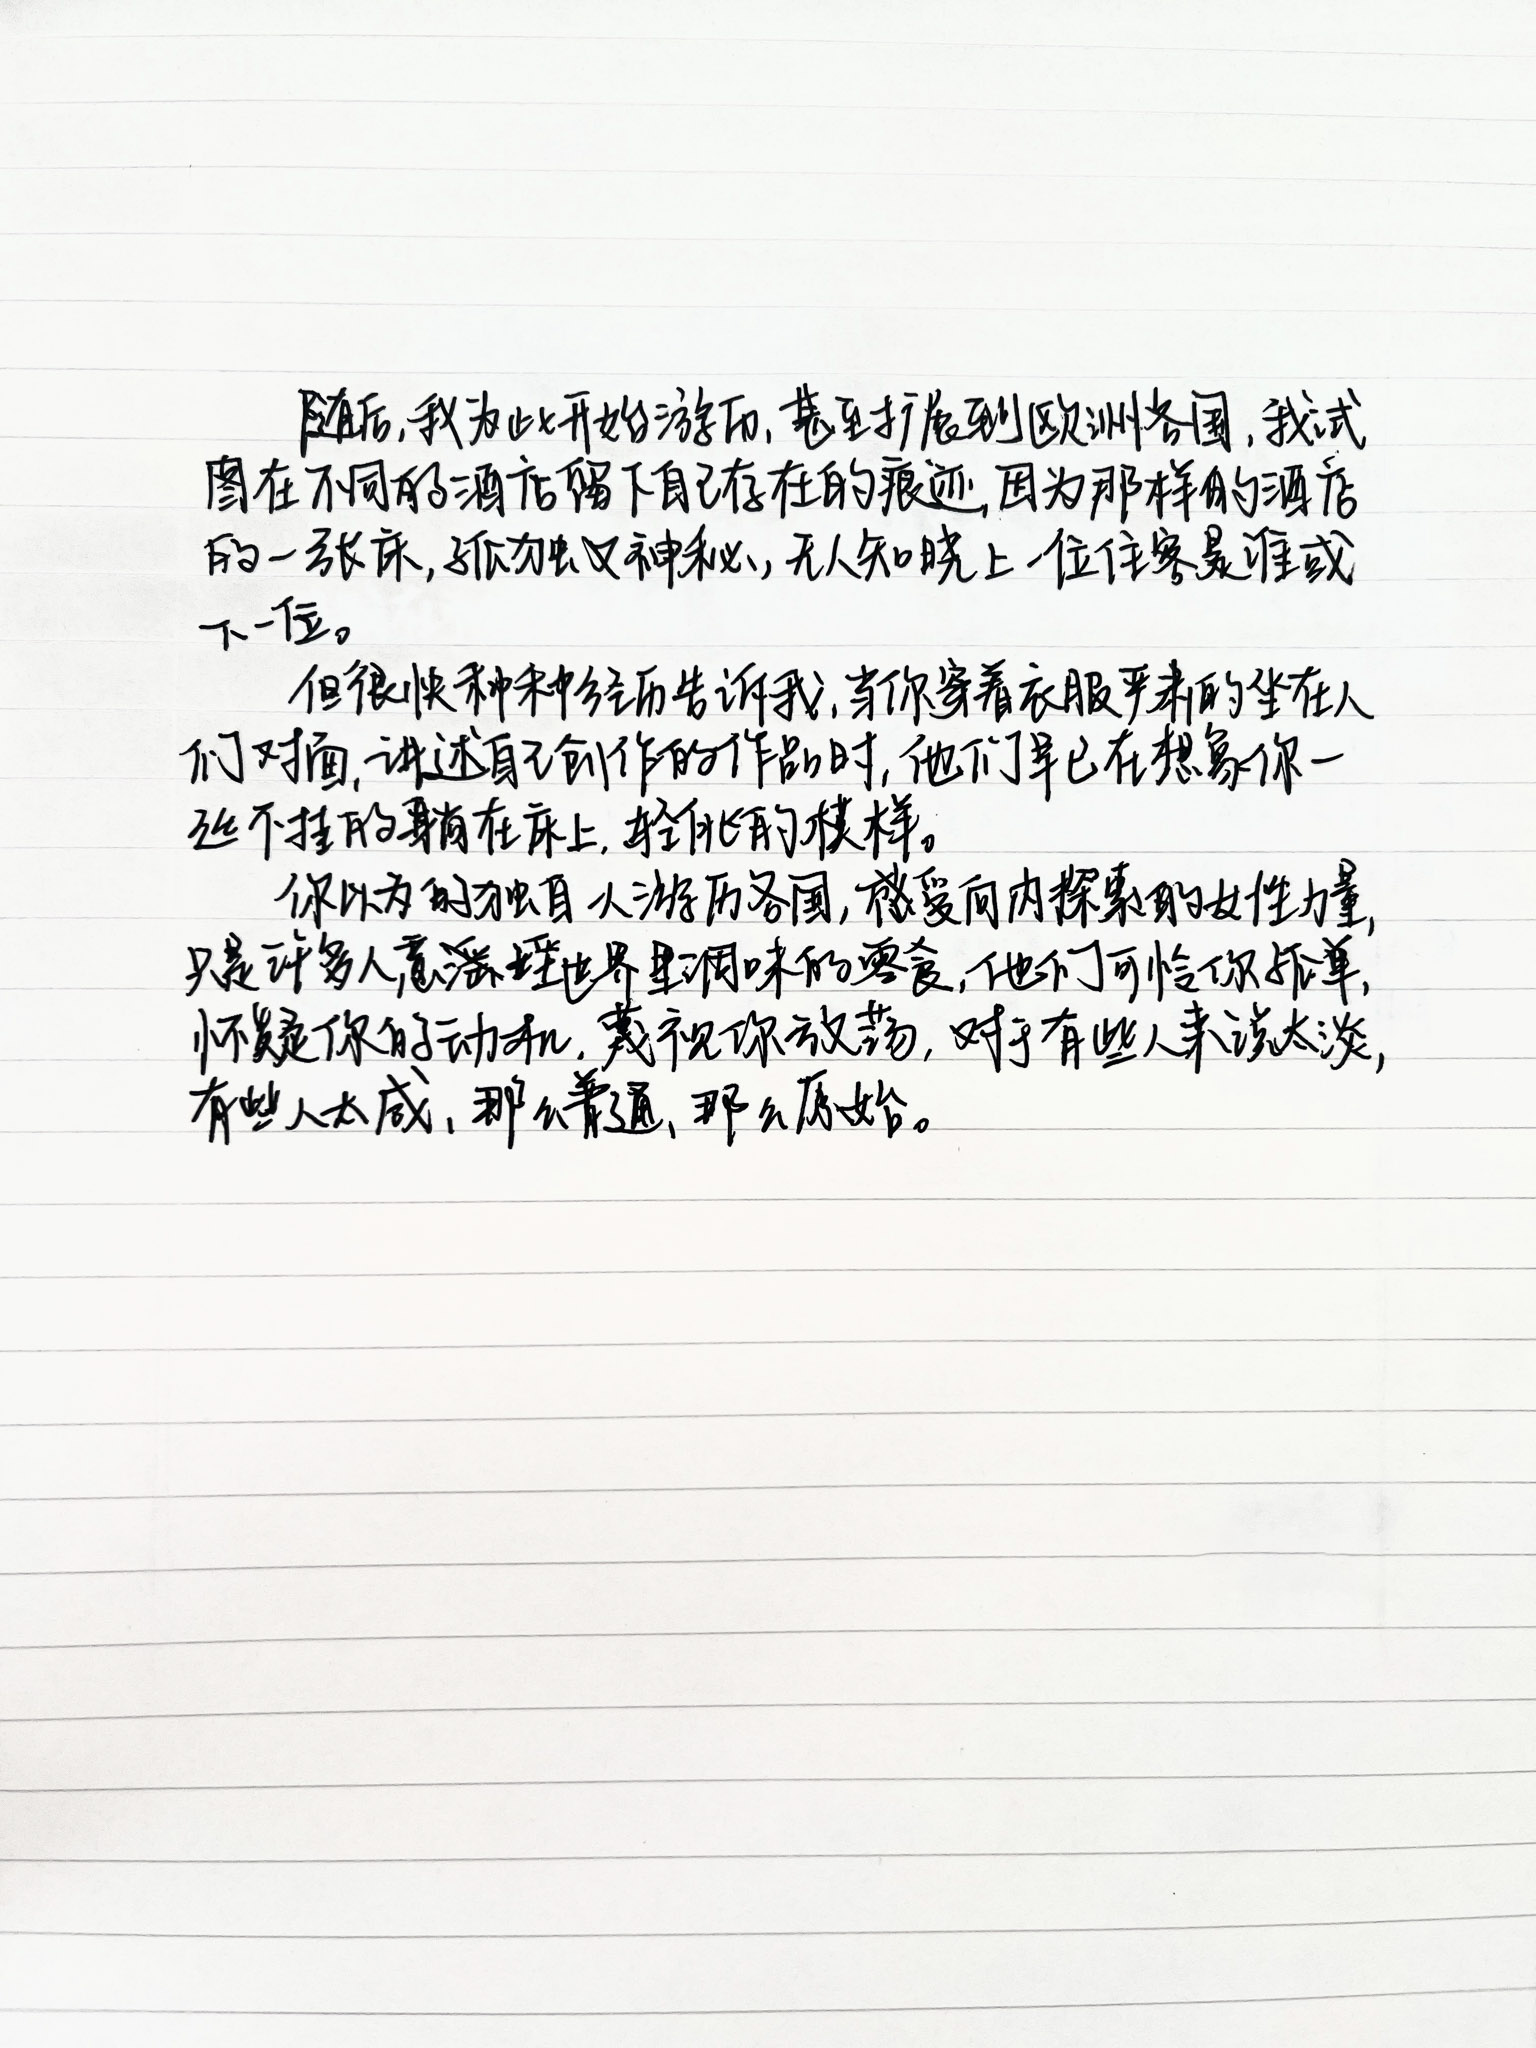 随后，我为此开始游历，甚至扩展到欧洲各国，我试
图在不同的酒店留下自己存在的痕迹，因为那样的酒店
的一张床，孤独又神秘，无人知晓上一位住客是谁或
下一位。
但很快种种经历告诉我，当你穿着衣服严肃的坐在人
们对面，讲述自己创作的作品时，他们早已在想象你一
丝不挂的躺在床上，轻佻的模样。
你以为的独自人游历各国，感受向内探索的女性力量，
只是许多人意淫世界里调味的零食，他们可怜你孤单，
怀疑你的动机，蔑视你放荡，对于有些人来说太淡，
有些人太咸，那么普通，那么原始。